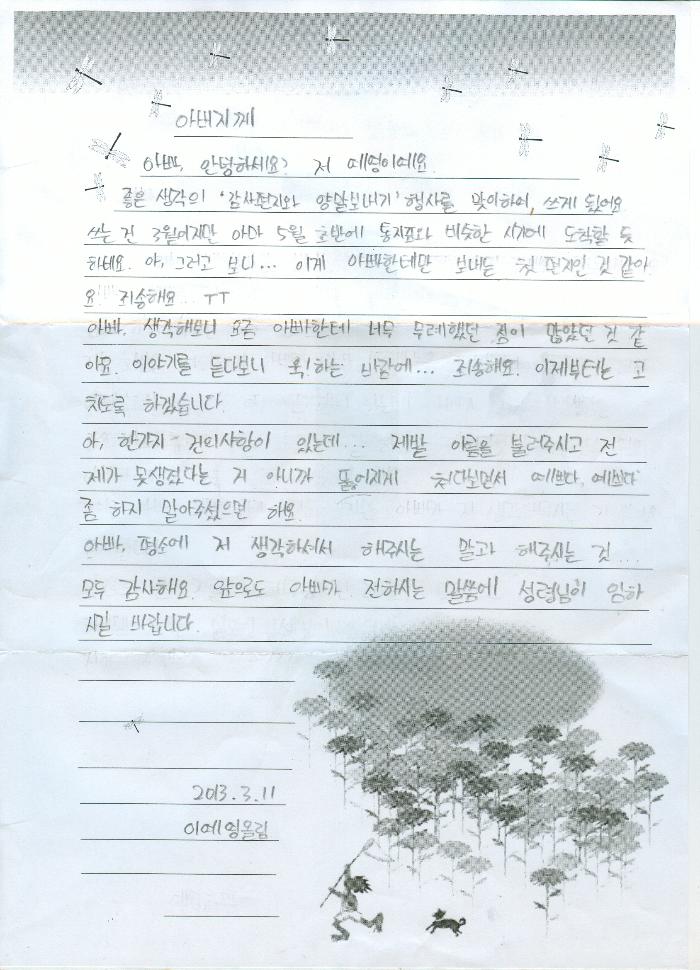 아버지께
아빠, 안녕하세요? 저 예영이예요.
좋은 생각의 '감사편지와 양말보내기' 행사를 맞이하여, 쓰게 됬어요
쓰는 건 3월이지만 아마 5월 초반에 통지표와 비슷한 시기에 도착할 듯
하네요. 아, 그러고 보니... 이게 아빠한테만 보내는 첫 편지인 것 같아
요. 죄송해요.. TT
아빠. 생각해보니 요즘 아빠한테 너무 무례했던 점이 많았던 것 같
아요. 이야기를 듣다보니 욱!하는 바람에... 죄송해요. 이제부터는 고
치도록 하겠습니다.
아, 한가지 건의사항이 있는데... 제발 이름을 불러주시고 전
제가 못생겼다는 거 아니까 뚫어지게 쳐다보면서 예쁘다, 예쁘다
좀 하지 말아주셨으면 해요.
아빠, 평소에 저 생각하셔서 해주시는 말과 해주시는 것...
모두 감사해요. 앞으로도 아빠가 전하시는 말씀에 성령님이 임하
시길 바랍니다.
2013.3.11
이예영올림